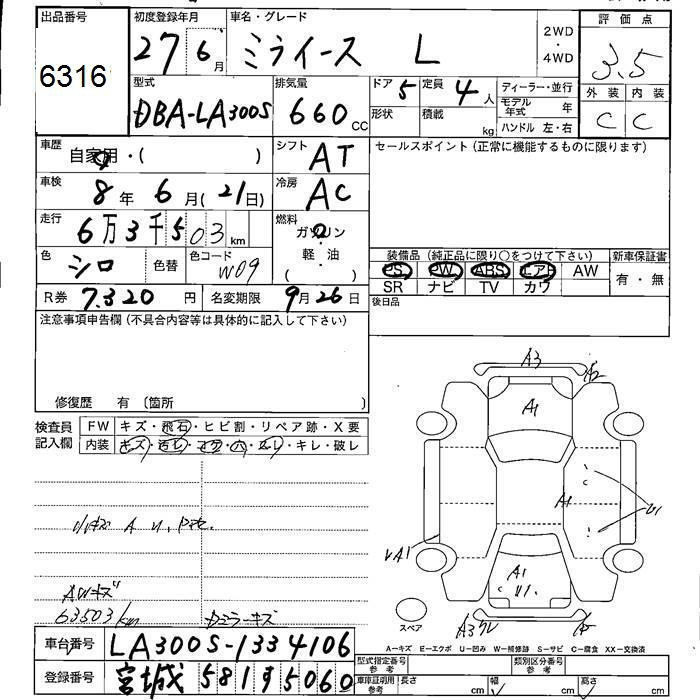 出品番号 初度登録年月 車名・グレード 2WD・4WD 評価点
6316 27 6月 ミライース L 3.5
型式 排気量 ドア 定員 ディーラー・並行 外装 内装
DBA-LA300S 660cc 5 4人 モデル年式 年 C C
形状 積載 kg ハンドル 左・右
車歴 自家用・( ) シフト AT セールスポイント(正常に機能するものに限ります)
車検 8年 6月(21日) 冷房 AC
走行 6万3千503km 燃料 ガソリン
色 シロ 色替 色コード W09 軽・油 ( )
装備品(純正品に限り○をつけて下さい) 新車保証書
PS PW ABS エアB AW 有・無
SR ナビ TV カワ
R券 7320円 名変期限 9月26日 後日品
注意事項申告欄(不具合内容等は具体的に記入して下さい)
修復歴 有 〔箇所 〕
検査員記入欄 FW キズ・飛石・ヒビ割・リペア跡・X要
内装 キズ・汚レ・コゲ・穴・スレ・キレ・破レ
A3 A2
A1
A1 U1
A1
A1
A3
AWキズ
63503km
ミラーキズ
スペア
A-キズ E-エクボ U-凹み W-補修跡 S-サビ C-腐食 XX-交換済
車台番号 LA300S-1334106
型式指定番号 参考 類別区分番号 参考
登録番号 宮城 581 す 5060
車両証明書 参考 長さ cm 幅 cm 高さ cm